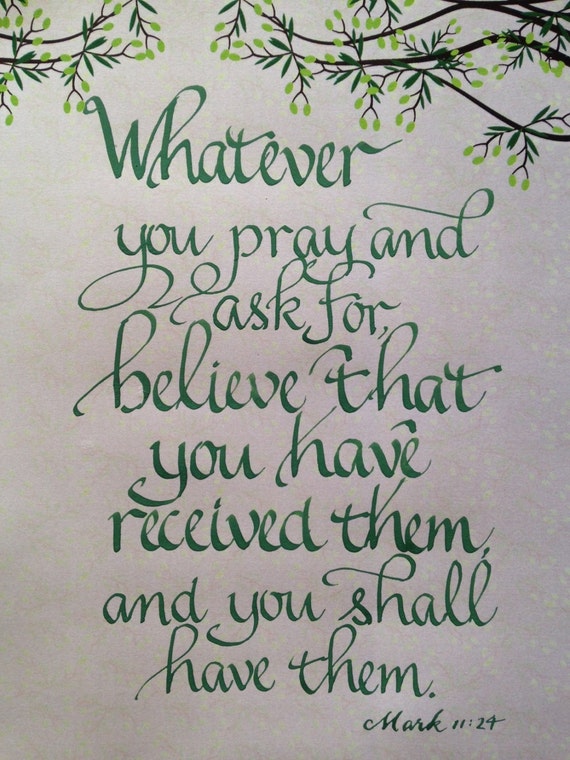 Whatever
you pray and
ask for,
believe that
you have
received them,
and you shall
have them.
Mark 11:24